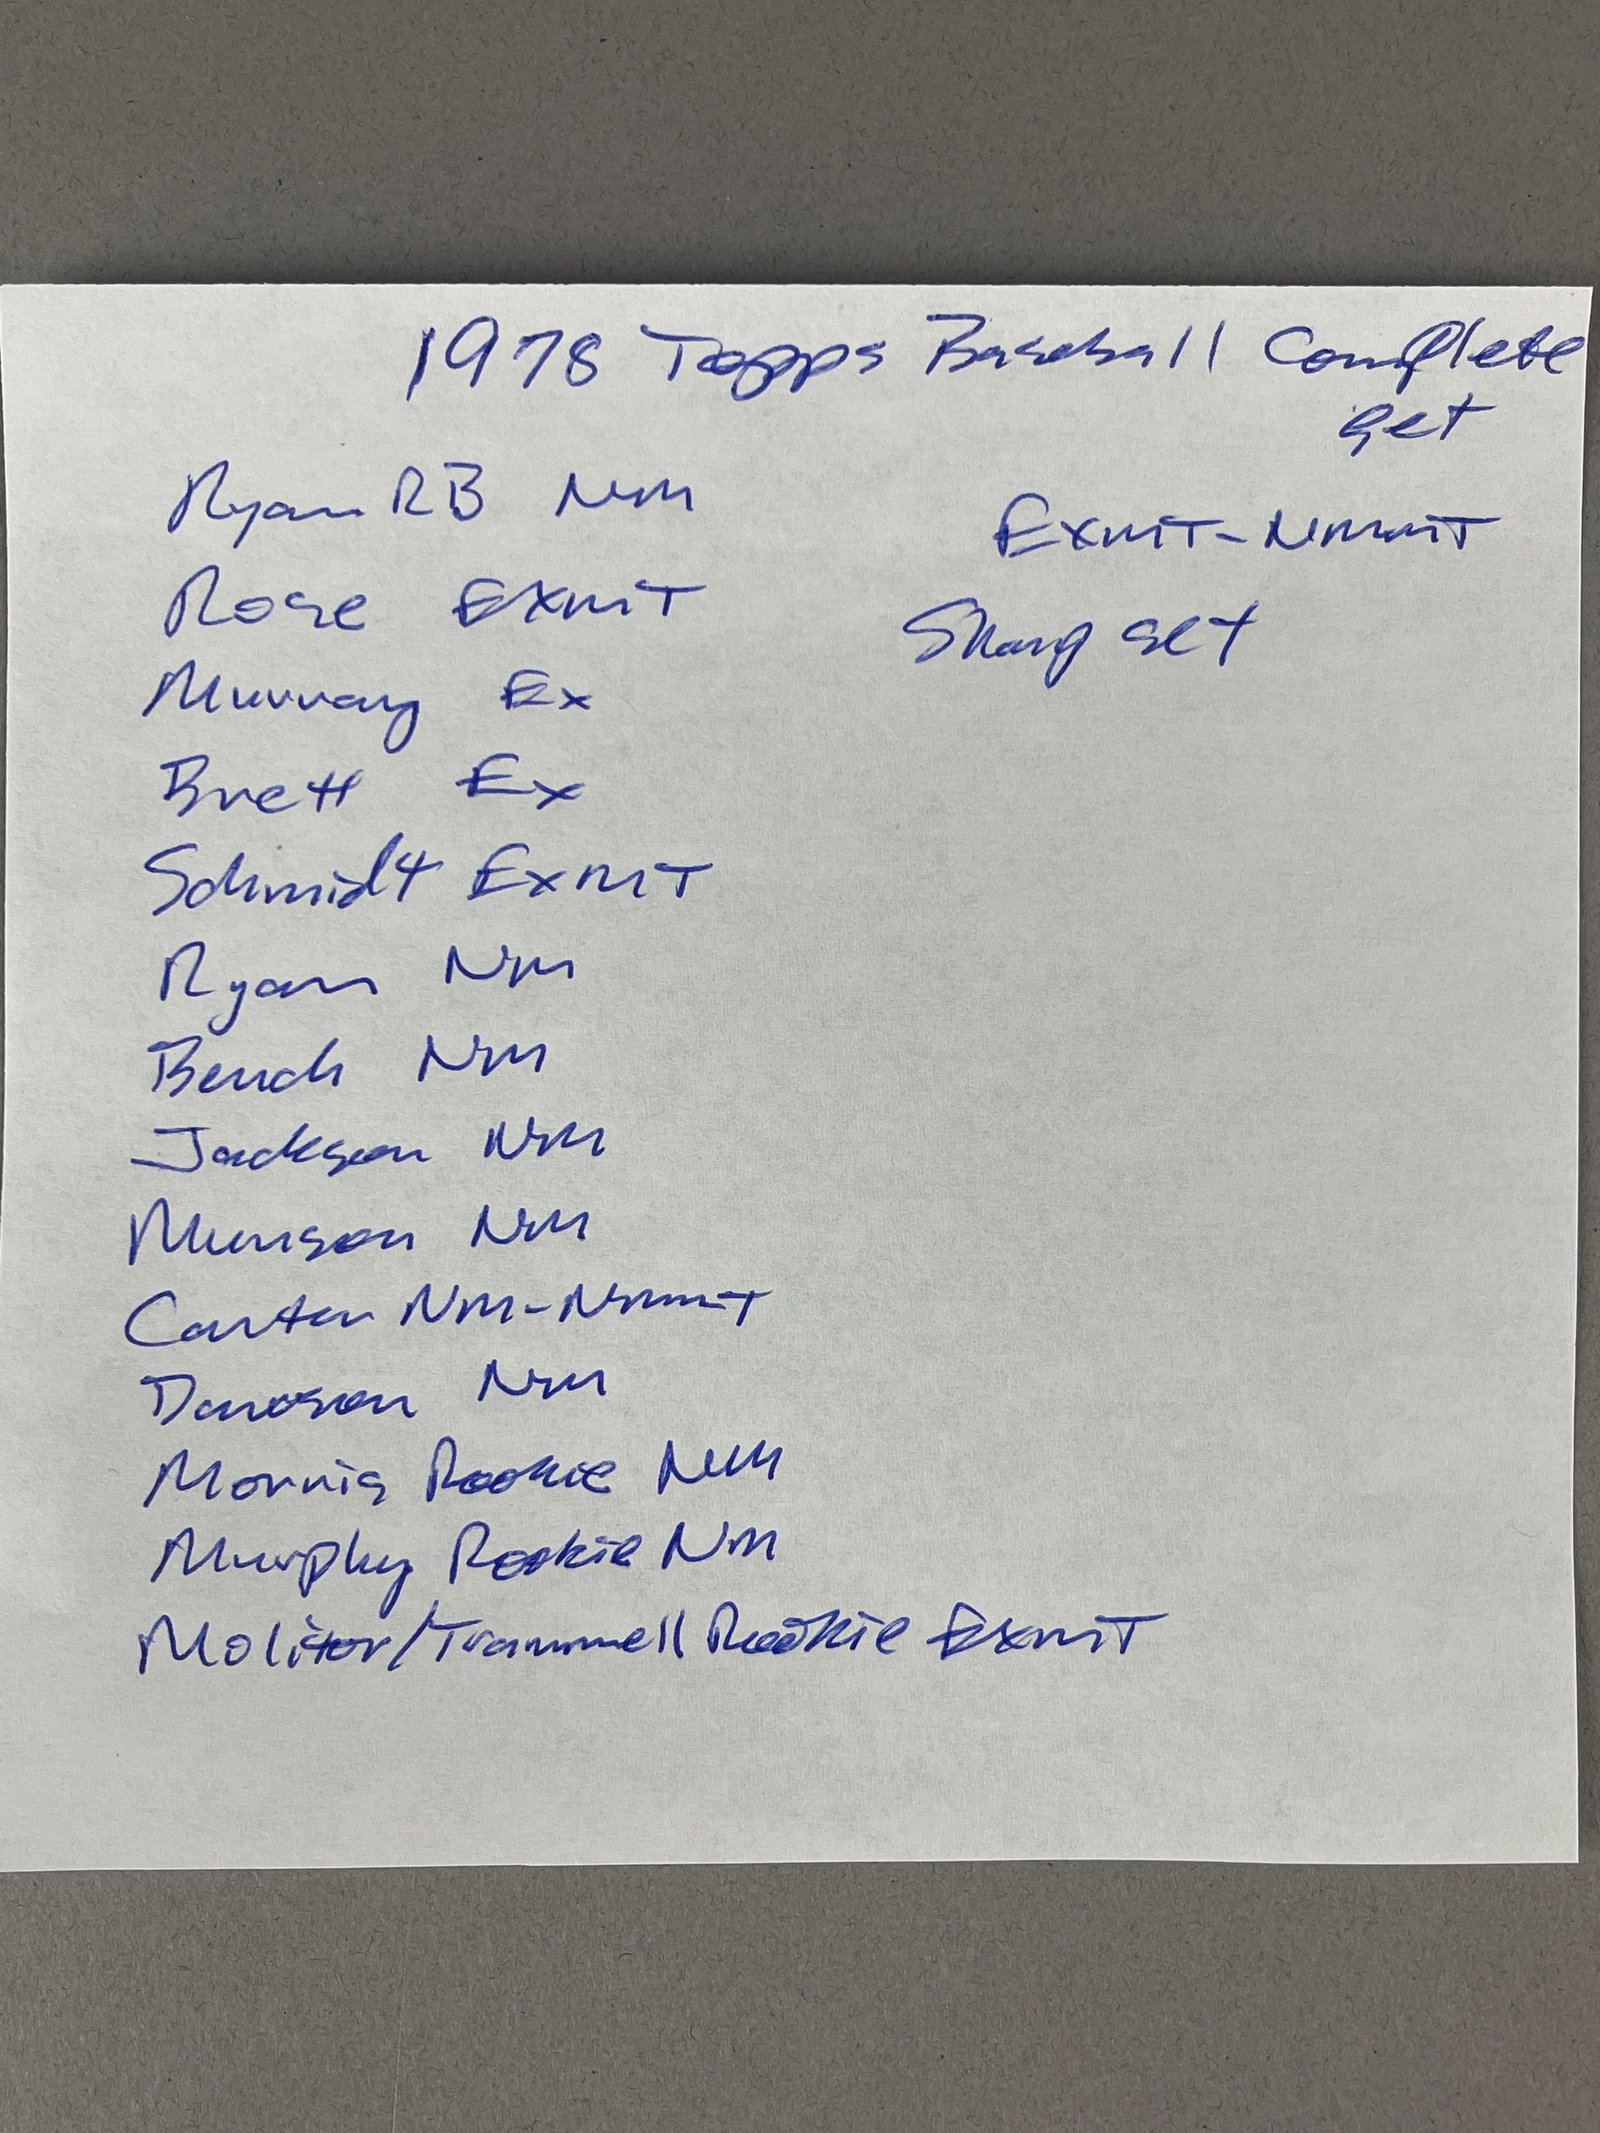 1978 Topps Baseball Complete
Set
Ryan RB NM
EXMT-NMMT
Rose EXMT
Sharp set
Murray Ex
Brett Ex
Schmidt EXMT
Ryan NM
Bench NM
Jackson NM
Munson NM
Carter NM-NMMT
Dawson NM
Morris Rookie NM
Murphy Rookie NM
Molitor/Trammell Rookie EXMT